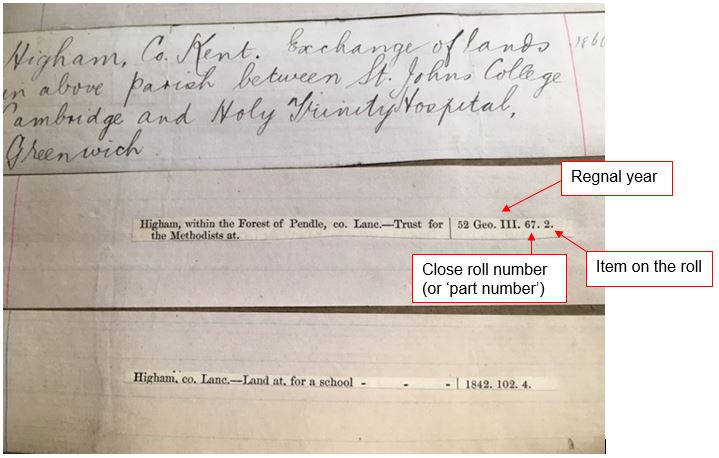 Higham, Co. Kent. Exchange of lands
in above parish between St. Johns College
Cambridge and Holy Trinity Hospital,
Greenwich
Regnal year
Higham, within the Forest of Pendle, co. Lanc.—Trust for the Methodists at. 52 Geo. III. 67. 2.
Close roll number
(or ‘part number’)
Item on the roll
Higham, co. Lanc.—Land at, for a school - - - 1842. 102. 4.